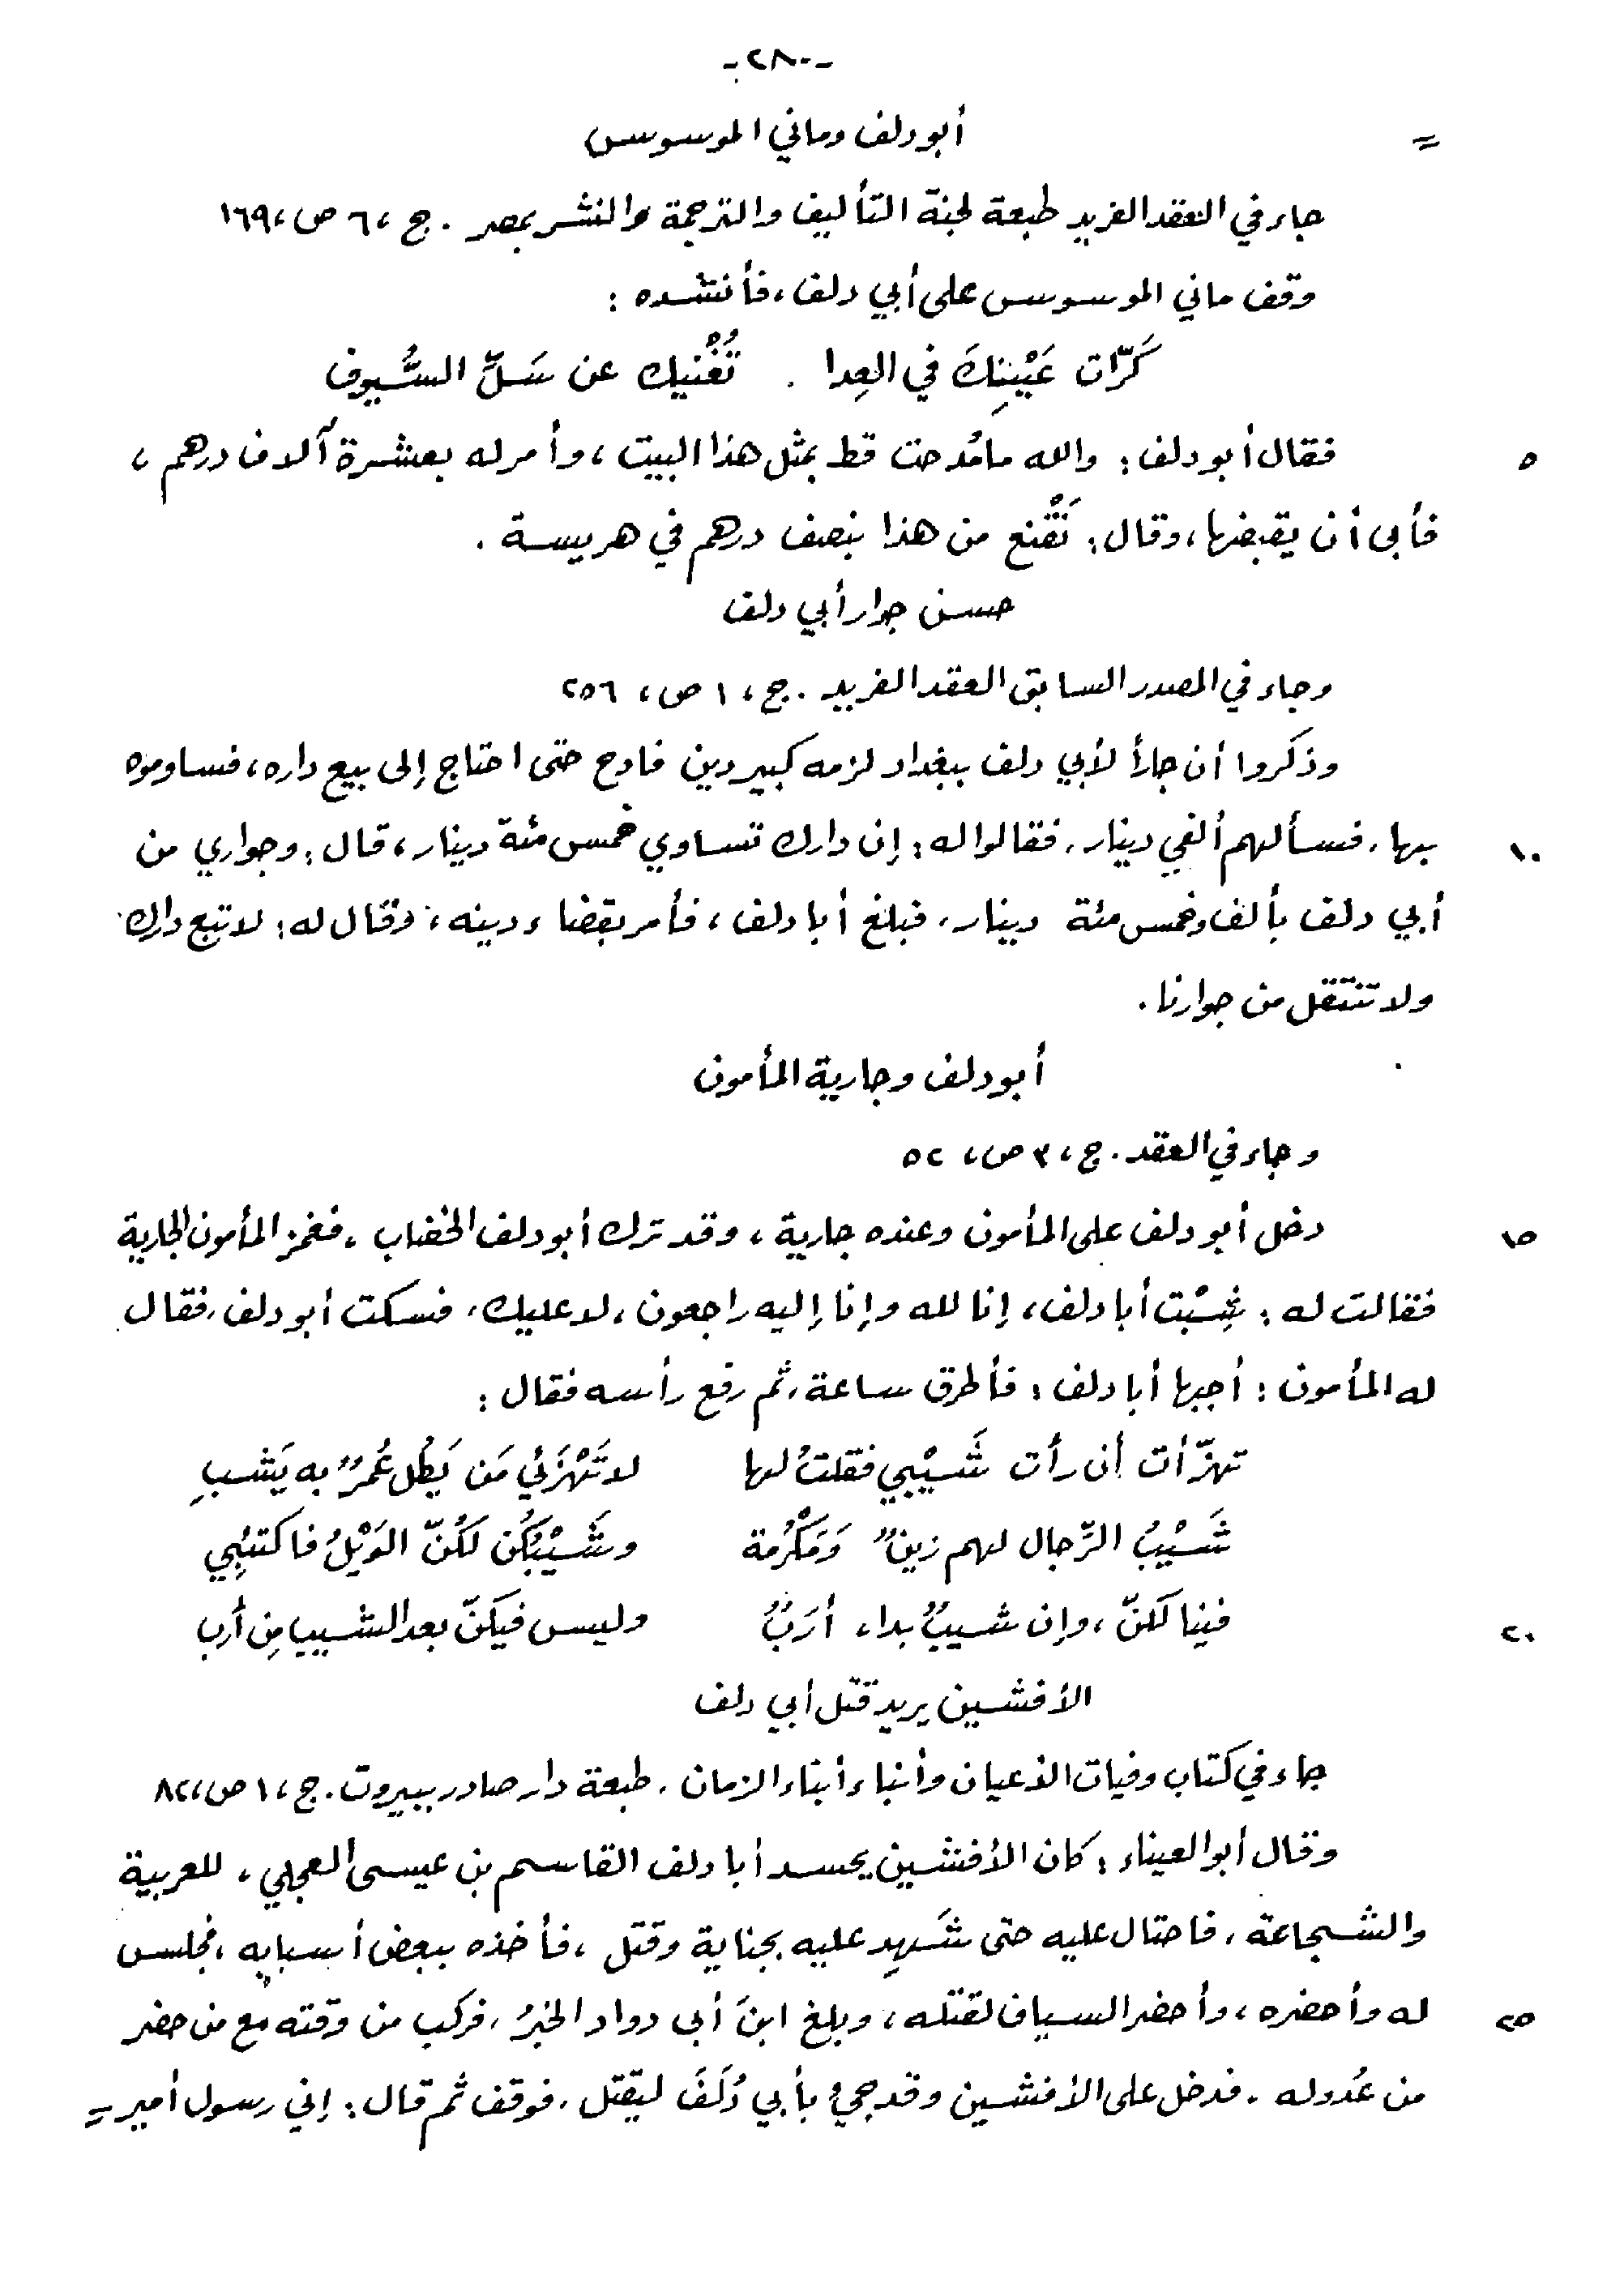 -٢٨٠-
= أبو دلف وماني الموسوس
جاء في العقد الفريد طبعة لجنة التأليف والترجمة والنشر بمصر. ج، ٦ ص، ١٦٩
وقف ماني الموسوس على أبي دلف، فأنشده:
كَرّات عَيْنِكَ في العِدا . تُغْنيك عن سَلِّ السُّيوف
٥ فقال أبو دلف: والله ما مُدحت قط بمثل هذا البيت، وأمر له بعشرة آلاف درهم،
فأبى أن يقبضها، وقال: نَقْنع من هذا بنصف درهم في هريسة.
حسن جوار أبي دلف
وجاء في المصدر السابق العقد الفريد. ج، ١ ص، ٢٥٦
وذكروا أن جاراً لأبي دلف ببغداد لزمه كبير دين فادح حتى احتاج إلى بيع داره، فساوموه
١٠ بها، فسألهم ألفي دينار، فقالوا له: إن دارك تساوي خمس مئة دينار، قال: وجواري من
أبي دلف بألف وخمس مئة دينار، فبلغ أبا دلف، فأمر بقضاء دينه، وقال له: لا تبع دارك
ولا تنتقل من جوارنا.
أبو دلف وجارية المأمون
وجاء في العقد. ج، ٣ ص، ٥٢
١٥ دخل أبو دلف على المأمون وعنده جارية، وقد ترك أبو دلف الخضاب، فغمز المأمون الجارية
فقالت له: شِبْت أبا دلف، إنا لله وإنا إليه راجعون، لا عليك، فسكت أبو دلف، فقال
له المأمون: أجبها أبا دلف: فأطرق ساعة، ثم رفع رأسه فقال:
تهزّأت أن رأت شَيْبي فقلتُ لها لا تَهْزَئي مَن يَطُل عُمرٌ به يَشبِ
شَيْبُ الرِّجال لهم زينٌ وَمَكْرُمة وشَيْبُكُن لكُنّ الوَيْلُ فاكتئِبي
٢٠ فينا لكنّ، وإن شيبٌ بدا، أرَبٌ وليس فيكنّ بعد الشيب مِن أرب
الأفشين يريد قتل أبي دلف
جاء في كتاب وفيات الأعيان وأنباء أبناء الزمان. طبعة دار صادر ببيروت. ج، ١ ص، ٨٢
وقال أبو العيناء: كان الأفشين يحسد أبا دلف القاسم بن عيسى العجلي، للعربية
والشجاعة، فاحتال عليه حتى شَهِد عليه بجناية وقتل، فأخذه ببعض أسبابه، فجلس
٢٥ له وأحضره، وأحضر السياف لقتله، وبلغ ابنَ أبي دواد الخبرُ، فركب من وقته مع من حضر
من عُدوله. فدخل على الأفشين وقد جيءُ بأبي دُلَفَ ليقتل، فوقف ثم قال: إني رسول أمير =